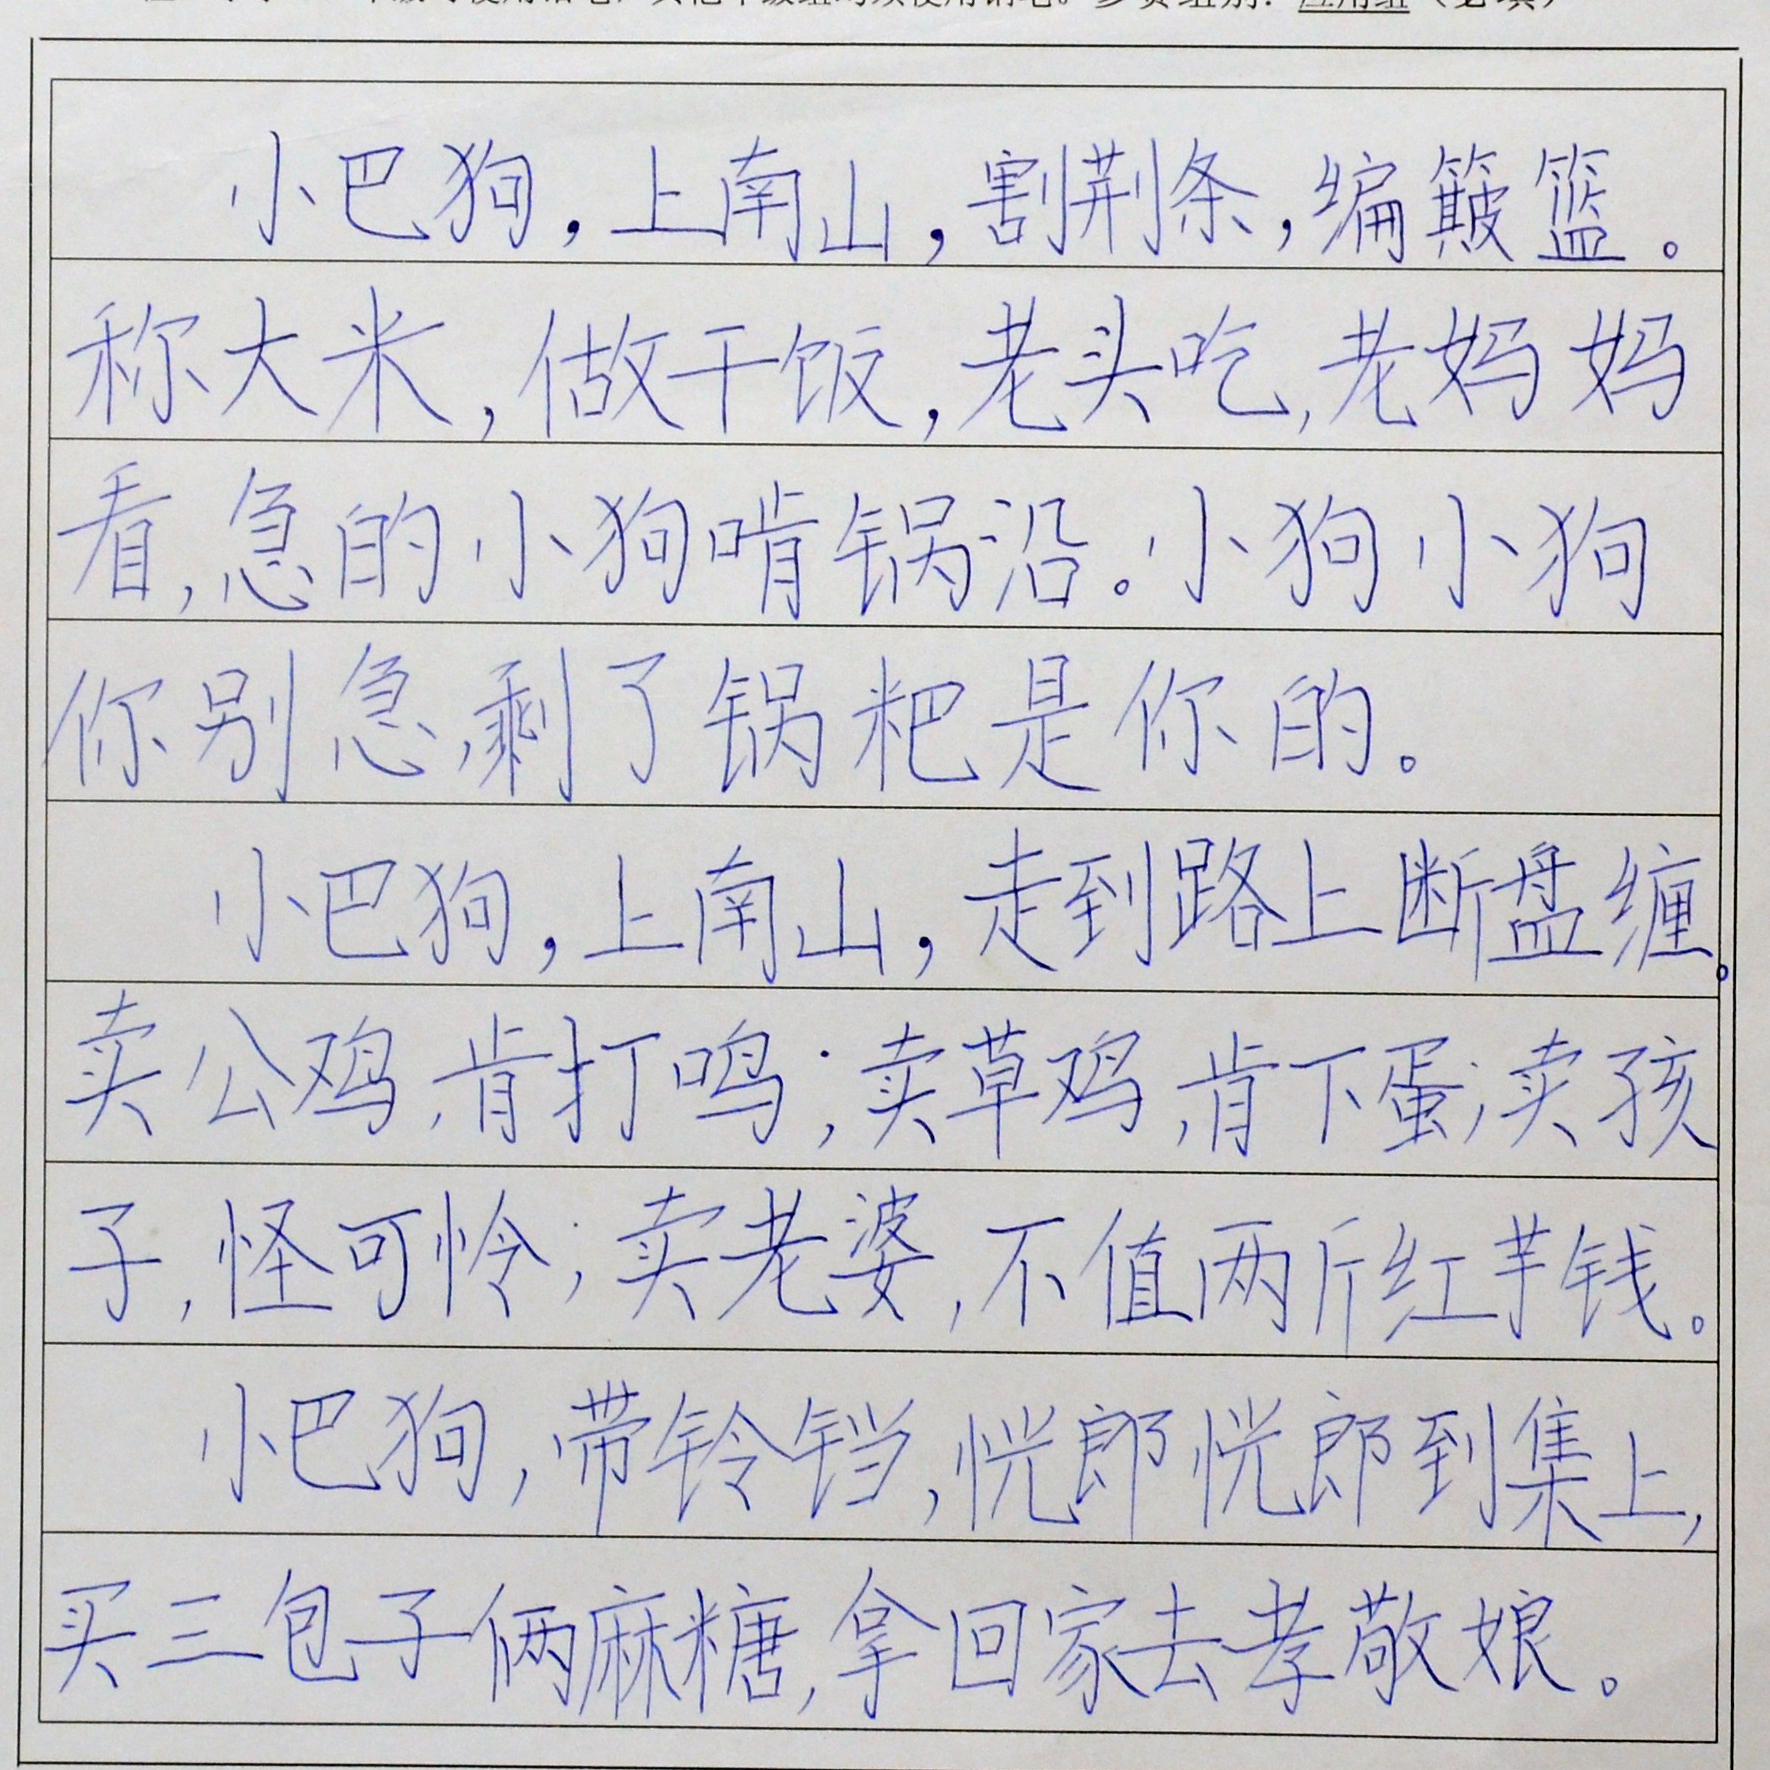 使用钢笔。参赛组别：应用组（必填）
小巴狗，上南山，割荆条，编簸篮。
称大米，做干饭，老头吃，老妈妈
看，急的小狗啃锅沿。小狗小狗
你别急，剩了锅粑是你的。
小巴狗，上南山，走到路上断盘缠。
卖公鸡，肯打鸣；卖草鸡，肯下蛋；卖孩
子，怪可怜；卖老婆，不值两斤红芋钱。
小巴狗，带铃铛，恍郎恍郎到集上，
买三包子俩麻糖，拿回家去孝敬娘。